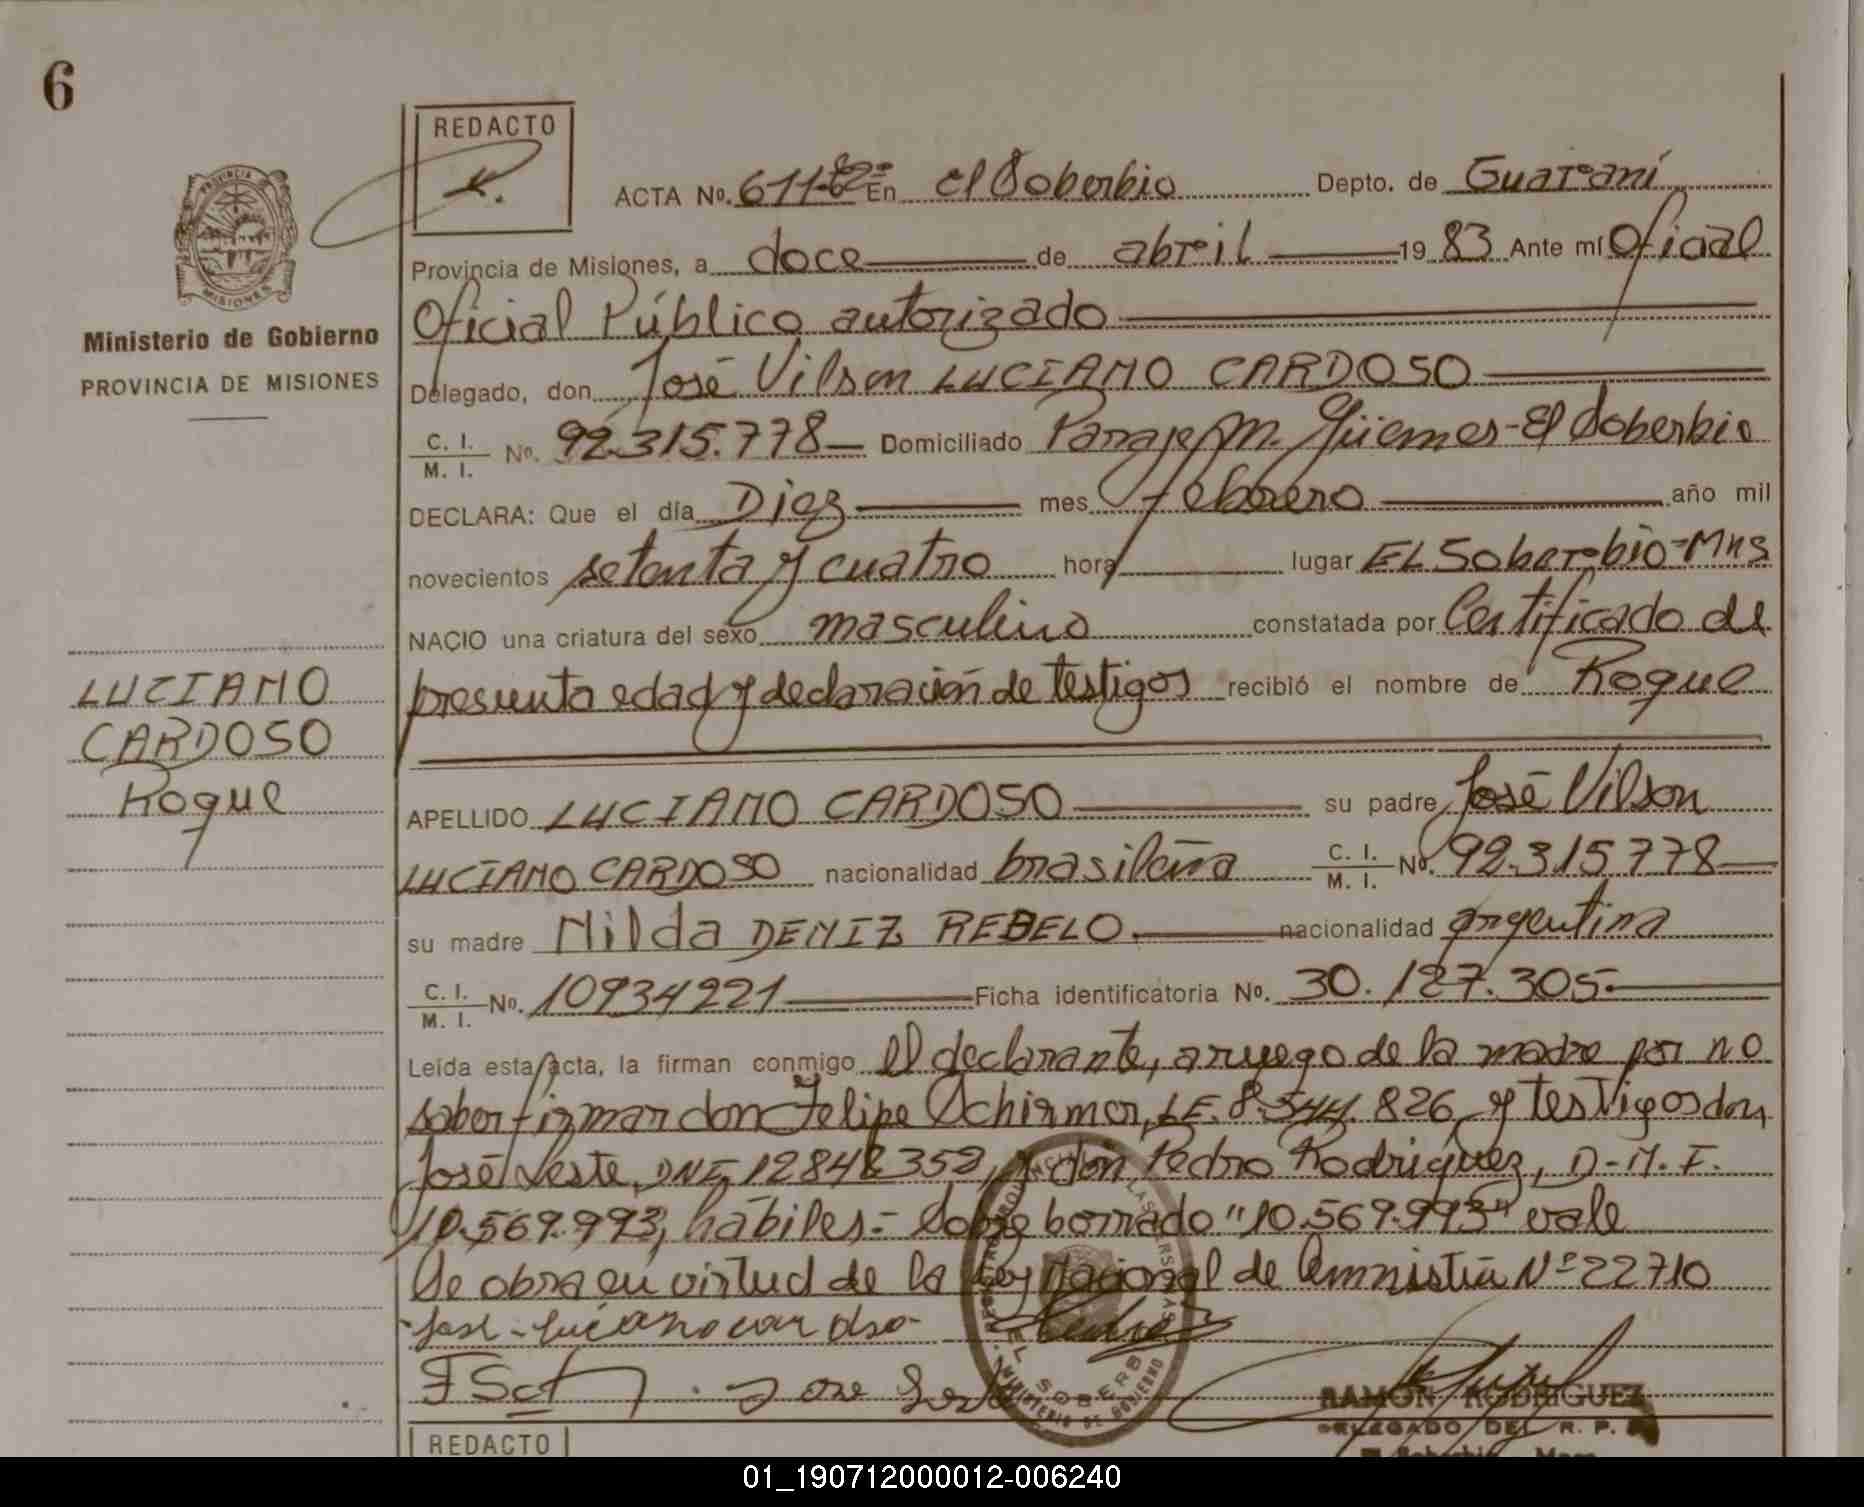 6
REDACTO
PROVINCIA DE
MISIONES
Ministerio de Gobierno
PROVINCIA DE MISIONES
ACTA No. 611 En el Soberbio Depto. de Guaraní
Provincia de Misiones, a doce de abril 1983 Ante mí Oficial
Oficial Público autorizado
Delegado, don José Vilson LUCIANO CARDOSO
C. I. / M. I. No. 92.315.778 Domiciliado Paraje M. Güemes - El Soberbio
DECLARA: Que el día Diez mes febrero año mil
novecientos setenta y cuatro hora lugar EL Soberbio - Mns
NACIO una criatura del sexo masculino constatada por Certificado de
presunta edad y declaración de testigos recibió el nombre de Roque
LUCIANO
CARDOSO
Roque
APELLIDO LUCIANO CARDOSO su padre José Vilson
LUCIANO CARDOSO nacionalidad brasileña C. I. / M. I. No. 92.315.778
su madre Nilda DENIZ REBELO. nacionalidad argentina
C. I. / M. I. No. 10934221 Ficha identificatoria No. 30.127.305
Leída esta acta, la firman conmigo el declarante, a ruego de la madre por no
saber firmar don Felipe Schirmer, L.E. 8.544.826 y testigos don
José Leste, DNI 12848352, y don Pedro Rodriguez, D.N.I.
10.569.993, hábiles.- Sobre borrado "10.569.993" vale
Se obra en virtud de la Ley Nacional de Amnistía Nº 22710
José Luciano cardoso
F Sch
Jose
RAMON RODRIGUEZ
DELEGADO DEL R. P.
El Soberbio
REDACTO
01_190712000012-006240